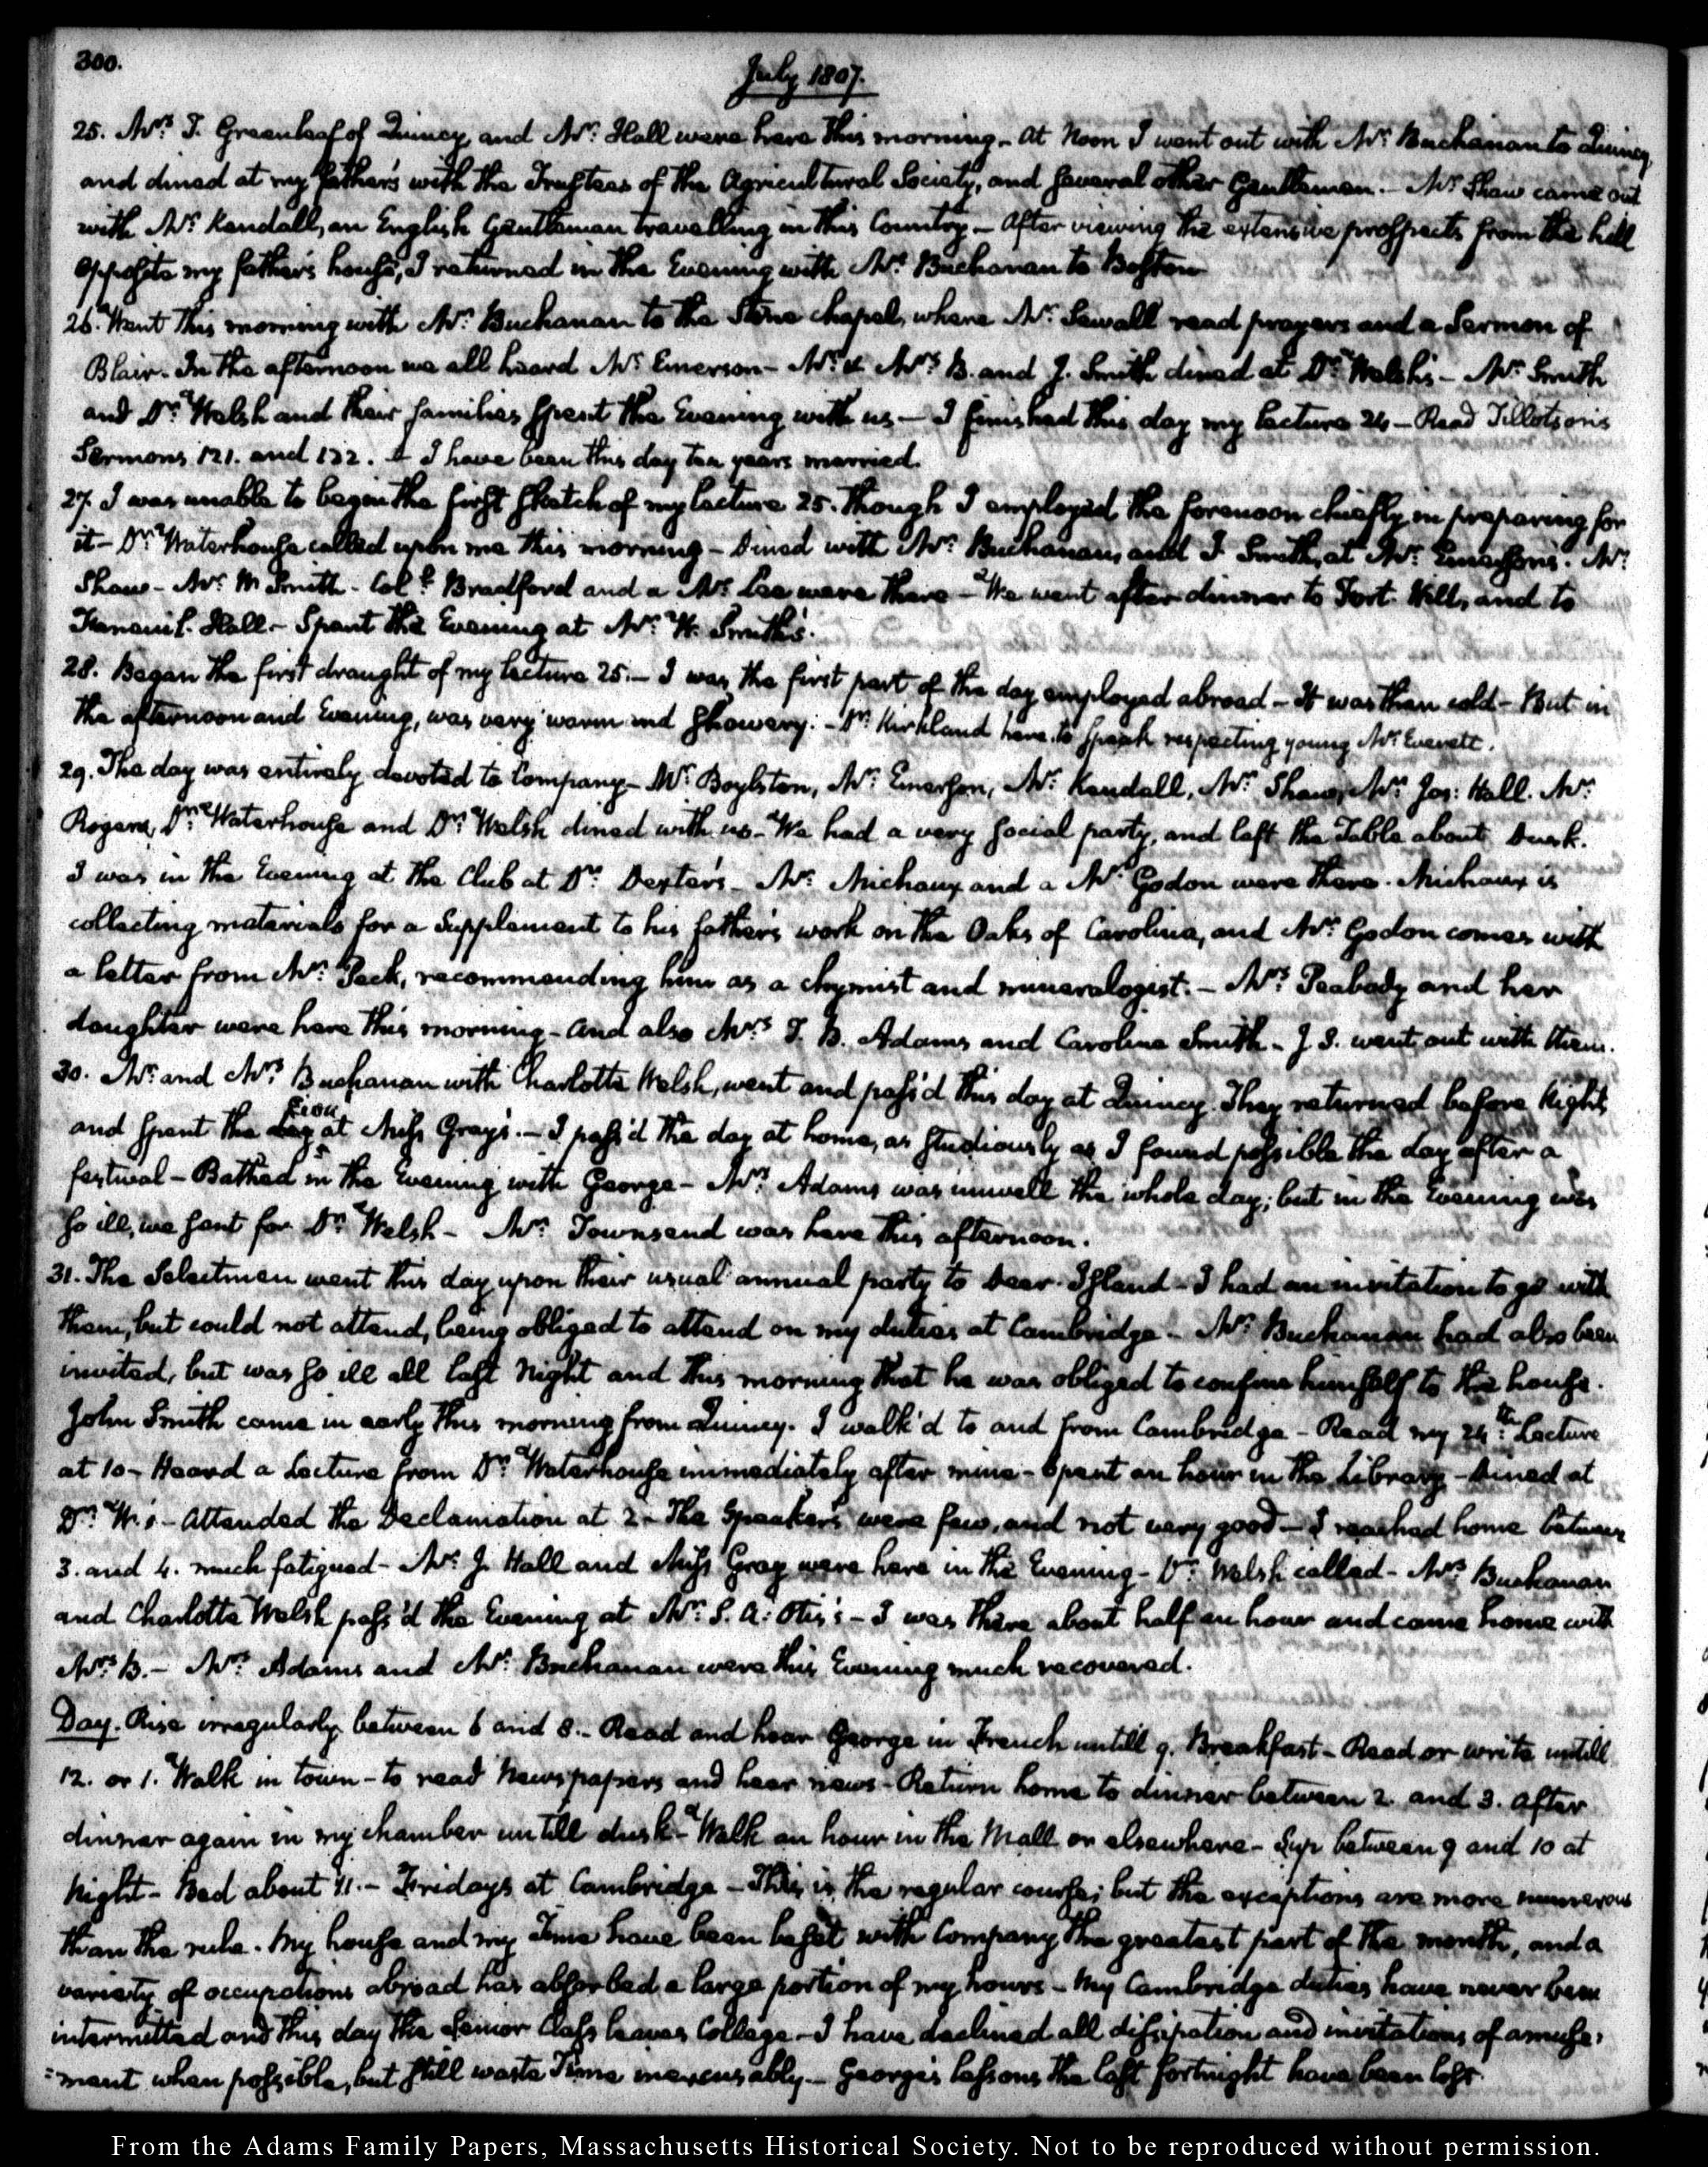 300.
July 1807.
25. Mrs. T. Greenleaf of Quincy, and Mr. Hall were here this morning. At Noon I went out with Mr. Buchanan to Quincy
and dined at my father's with the Trustees of the Agricultural Society, and several other Gentlemen. – Mr. Shaw came out
with Mr. Kendall, an English Gentleman travelling in this Country – After viewing the extensive prospects from the hill
opposite my father's house, I returned in the Evening with Mr. Buchanan to Boston
26. Went this morning with Mr. Buchanan to the Stone Chapel, where Mr. Sewall read prayers and a Sermon of
Blair. In the afternoon we all heard Mr. Emerson – Mr. & Mrs. B. and J. Smith dined at Dr. Welsh's – Mr. Smith
and Dr. Welsh and their families spent the Evening with us – I finished this day my lecture 24 – Read Tillotson's
Sermons 121. and 122. I have been this day ten years married.
27. I was unable to begin the first sketch of my lecture 25. though I employed the forenoon chiefly in preparing for
it – Dr. Waterhouse called upon me this morning – Dined with Mr. Buchanan, and J. Smith, at Mr. Emerson's. Mr.
Shaw – Mr. W Smith – Coll. Bradford and a Mr. Lee were there – We went after dinner to Fort Hill, and to
Faneuil Hall – Spent the Evening at Mr. W. Smith's.
28. Began the first draught of my lecture 25. – I was the first part of the day employed abroad – It was then cold – But in
the afternoon and Evening, was very warm and showery. – Dr. Kirkland here to speak respecting young Mr. Everett.
29. The day was entirely devoted to Company – Mr. Boylston, Mr. Emerson, Mr. Kendall, Mr. Shaw, Mr. Jos: Hall. Mr.
Rogers, Dr. Waterhouse and Dr. Welsh dined with us – We had a very social party, and left the Table about Dusk.
I was in the Evening at the Club at Dr. Dexter's – Mr. Michaux and a Mr. Godon were there. Michaux is
collecting materials for a Supplement to his father's work on the Oaks of Carolina, and Mr. Godon comes with
a letter from Mr. Peck, recommending him as a chymist and mineralogist. – Mrs. Peabody and her
daughter were here this morning – And also Mrs. T. B. Adams and Caroline Smith – J S. went out with them.
30. Mr. and Mrs. Buchanan with Charlotte Welsh, went and pass'd this day at Quincy. They returned before Night
and spent the day at Miss Gray's. – I pass'd the day at home, as studiously as I found possible the day after a
festival – Bathed in the Evening with George – Mrs. Adams was unwell the whole day; but in the Evening was
so ill, we sent for Dr. Welsh – Mr. Townsend was here this afternoon.
31. The Selectmen went this day upon their usual annual party to Deer-Island – I had an invitation to go with
them, but could not attend, being obliged to attend on my duties at Cambridge – Mr. Buchanan had also been
invited, but was so ill all last Night and this morning that he was obliged to confine himself to the house.
John Smith came in early this morning from Quincy. I walk'd to and from Cambridge – Read my 24th. Lecture
at 10 – Heard a Lecture from Dr. Waterhouse immediately after mine – Spent an hour in the Library – Dined at
Dr. W.'s – Attended the Declamation at 2 – The Speakers were few, and not very good – I reached home between
3. and 4. much fatigued – Mr. J. Hall and Miss Gray were here in the Evening – Dr. Welsh called – Mrs. Buchanan
and Charlotte Welsh pass'd the Evening at Mr. S. A. Otis's – I was there about half an hour and came home with
Mrs. B. – Mrs. Adams and Mr. Buchanan were this Evening much recovered.
Day. Rise irregularly between 6 and 8. – Read and hear George in French untill 9. Breakfast – Read or write untill
12. or 1. Walk in town – to read Newspapers and hear news – Return home to dinner between 2 and 3. After
dinner again in my chamber untill dusk – Walk an hour in the Mall or elsewhere – Sup between 9 and 10 at
Night – Bed about 11. – Fridays at Cambridge – This is the regular course; but the exceptions are more numerous
than the rule. My house and my Time have been beset with Company the greatest part of the month, and a
variety of occupations abroad has absorbed a large portion of my hours – My Cambridge duties have never been
intermitted and this day the Senior Class leaves College – I have declined all dissipation and invitations of amuse:
:ment when possible, but still waste Time inexcusably – George's lessons the last fortnight have been lost.
From the Adams Family Papers, Massachusetts Historical Society. Not to be reproduced without permission.